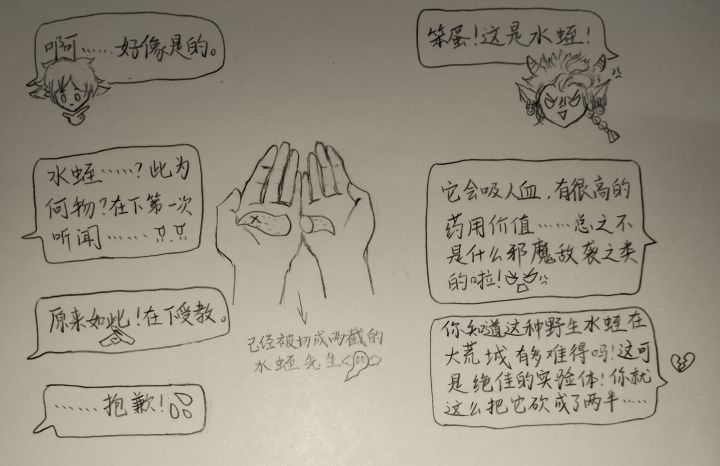 啊……好像是的。
笨蛋！这是水蛭！
水蛭……？此为
何物？在下第一次
听闻……
它会吸人血，有很高的
药用价值……总之不
是什么邪魔敌袭之类
的啦！
原来如此！在下受教。
已经被切成两截的
水蛭先生
你知道这种野生水蛭在
大荒城有多难得吗！这可
是绝佳的实验体！你就
这么把它砍成了两半……
……抱歉！